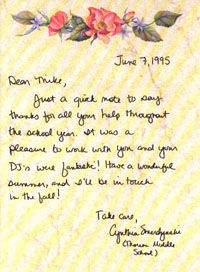 June 7, 1995
Dear Mike,
Just a quick note to say
thanks for all your help throughout
the school year. It was a
pleasure to work with you and your
DJ's were fantastic! Have a wonderful
summer, and I'll be in touch
in the fall!
Take care,
Cynthia
Middle
School)